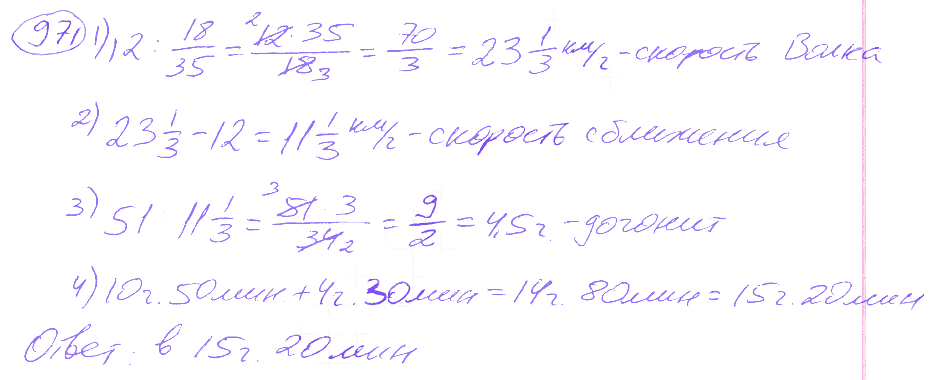 971 1) 12 : 18/35 = 12·35/18 2 3 = 70/3 = 23 1/3 км/ч - скорость Волка
2) 23 1/3 - 12 = 11 1/3 км/ч - скорость сближения
3) 51 : 11 1/3 = 51·3/34 3 2 = 9/2 = 4,5 ч. - догонит
4) 10 ч. 50 мин + 4 ч. 30 мин = 14 ч. 80 мин = 15 ч. 20 мин
Ответ: в 15 ч. 20 мин